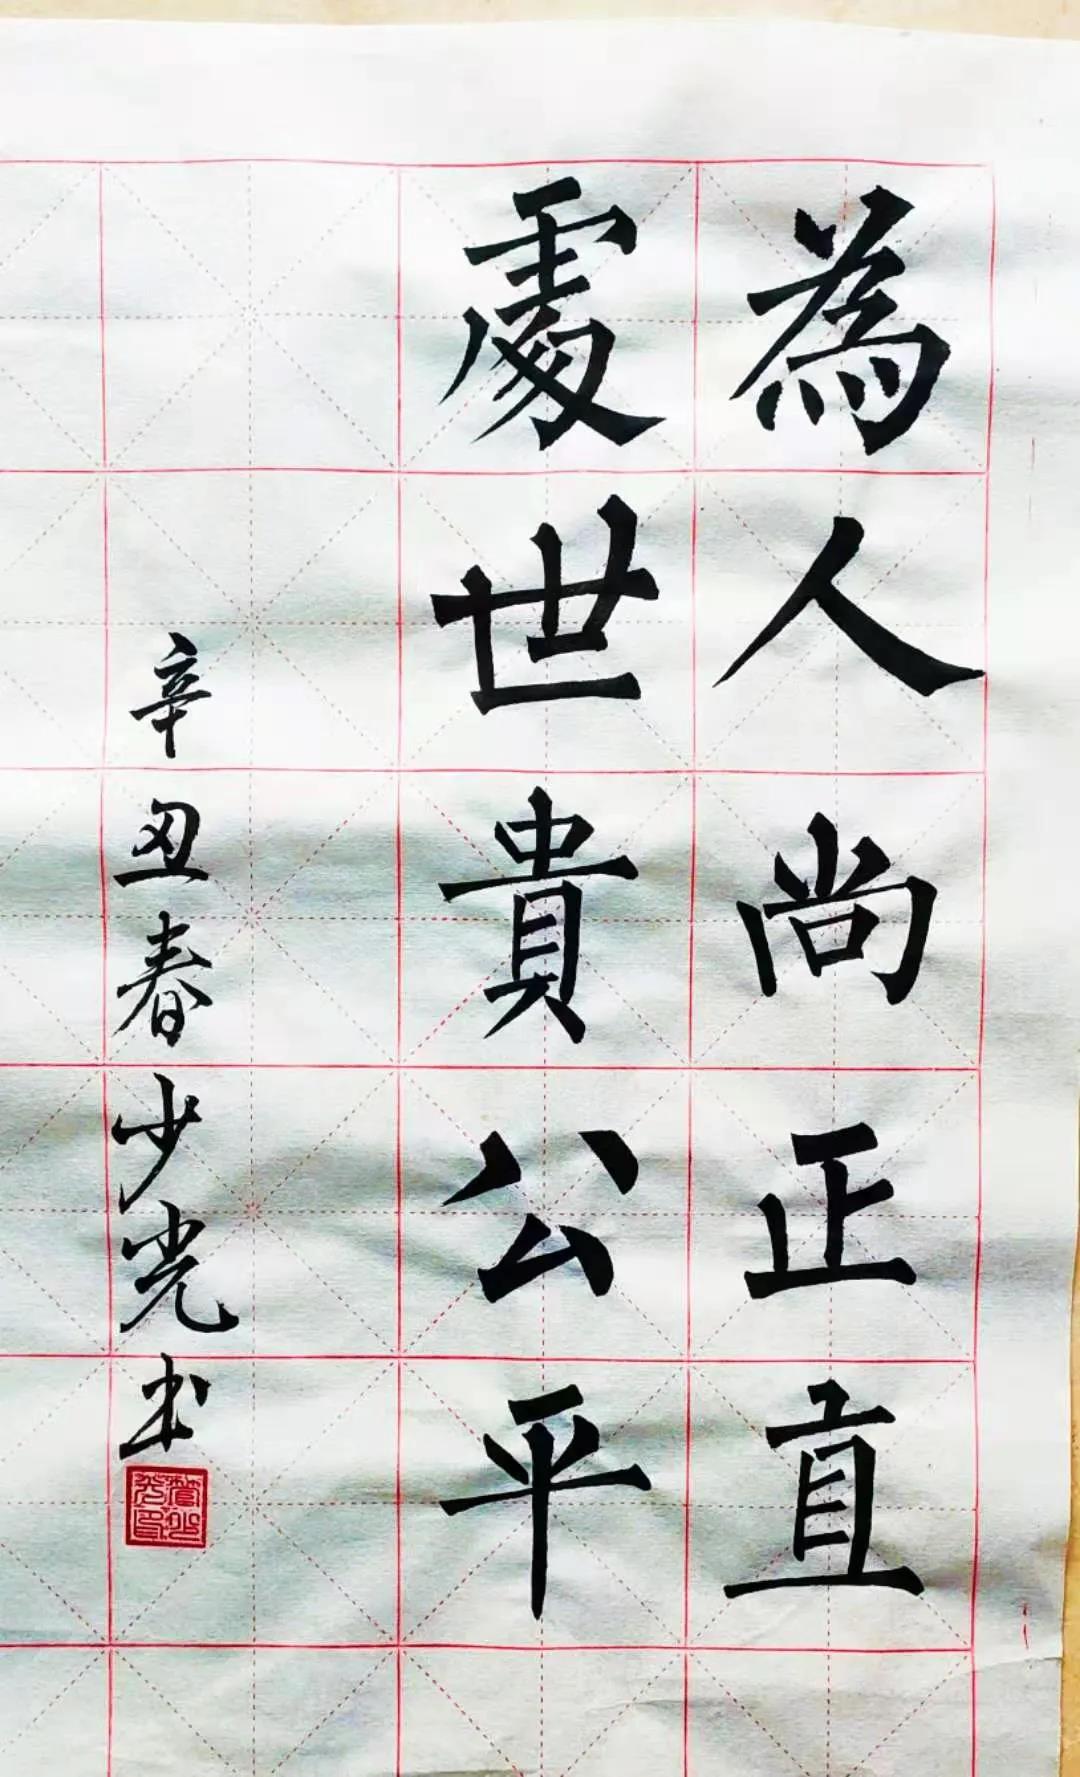 為人尚正直
處世貴公平
辛丑春少光书